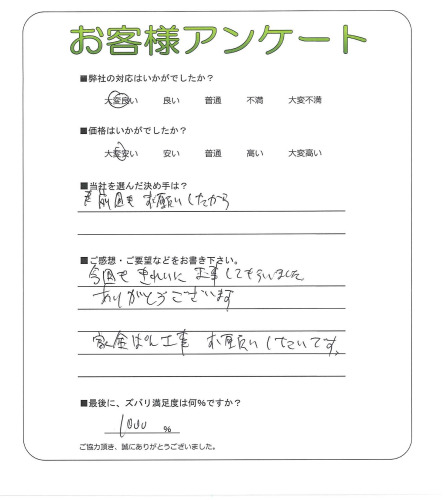 お客様アンケート
■弊社の対応はいかがでしたか？
大変良い 良い 普通 不満 大変不満
■価格はいかがでしたか？
大変安い 安い 普通 高い 大変高い
■当社を選んだ決め手は？
前回も お願いしたから
■ご感想・ご要望などをお書き下さい。
今回も きれいに 工事してもらいました
ありがとうございます
工事 お願いしたいです。
■最後に、ズバリ満足度は何％ですか？
1000 %
ご協力頂き、誠にありがとうございました。